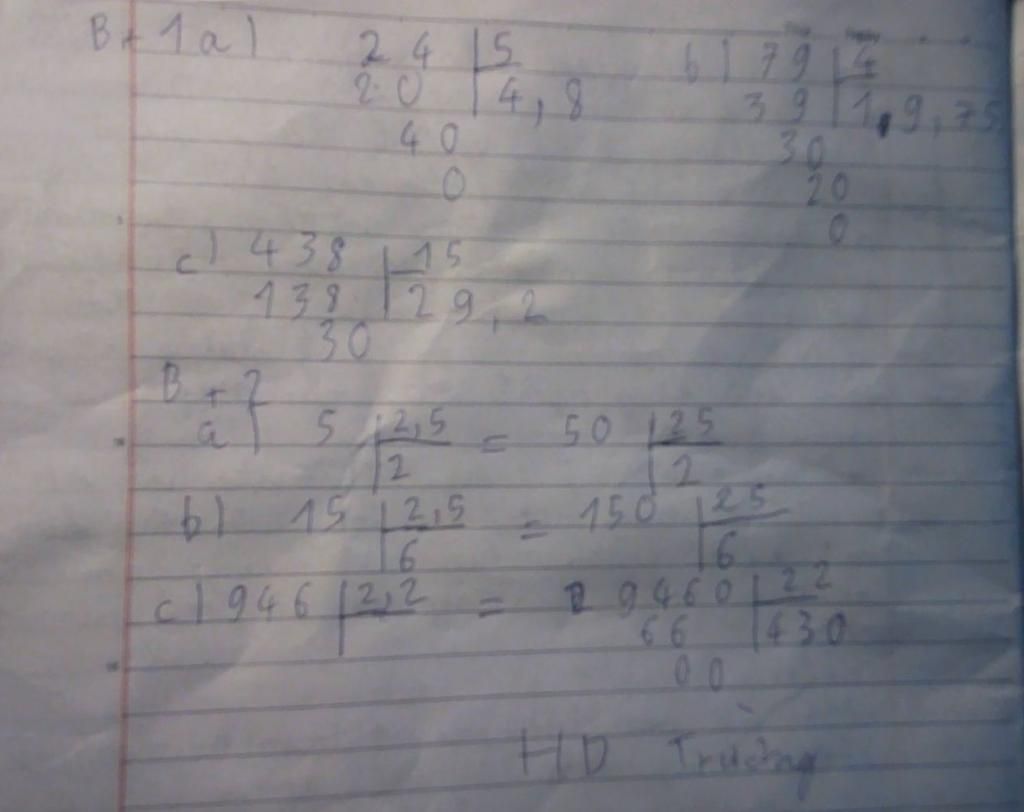 B + 1 a) 24 | 5 b) 79 | 4
20 | 4,8 39 | 1 9,75
40 30
0 20
0
c) 438 | 15
138 | 29,2
30
B + 2
a) 5 | 2,5 = 50 | 25
2 2
b) 15 | 2,5 = 150 | 25
6 6
c) 946 | 2,2 = 9460 | 22
66 | 430
00
HD Trường